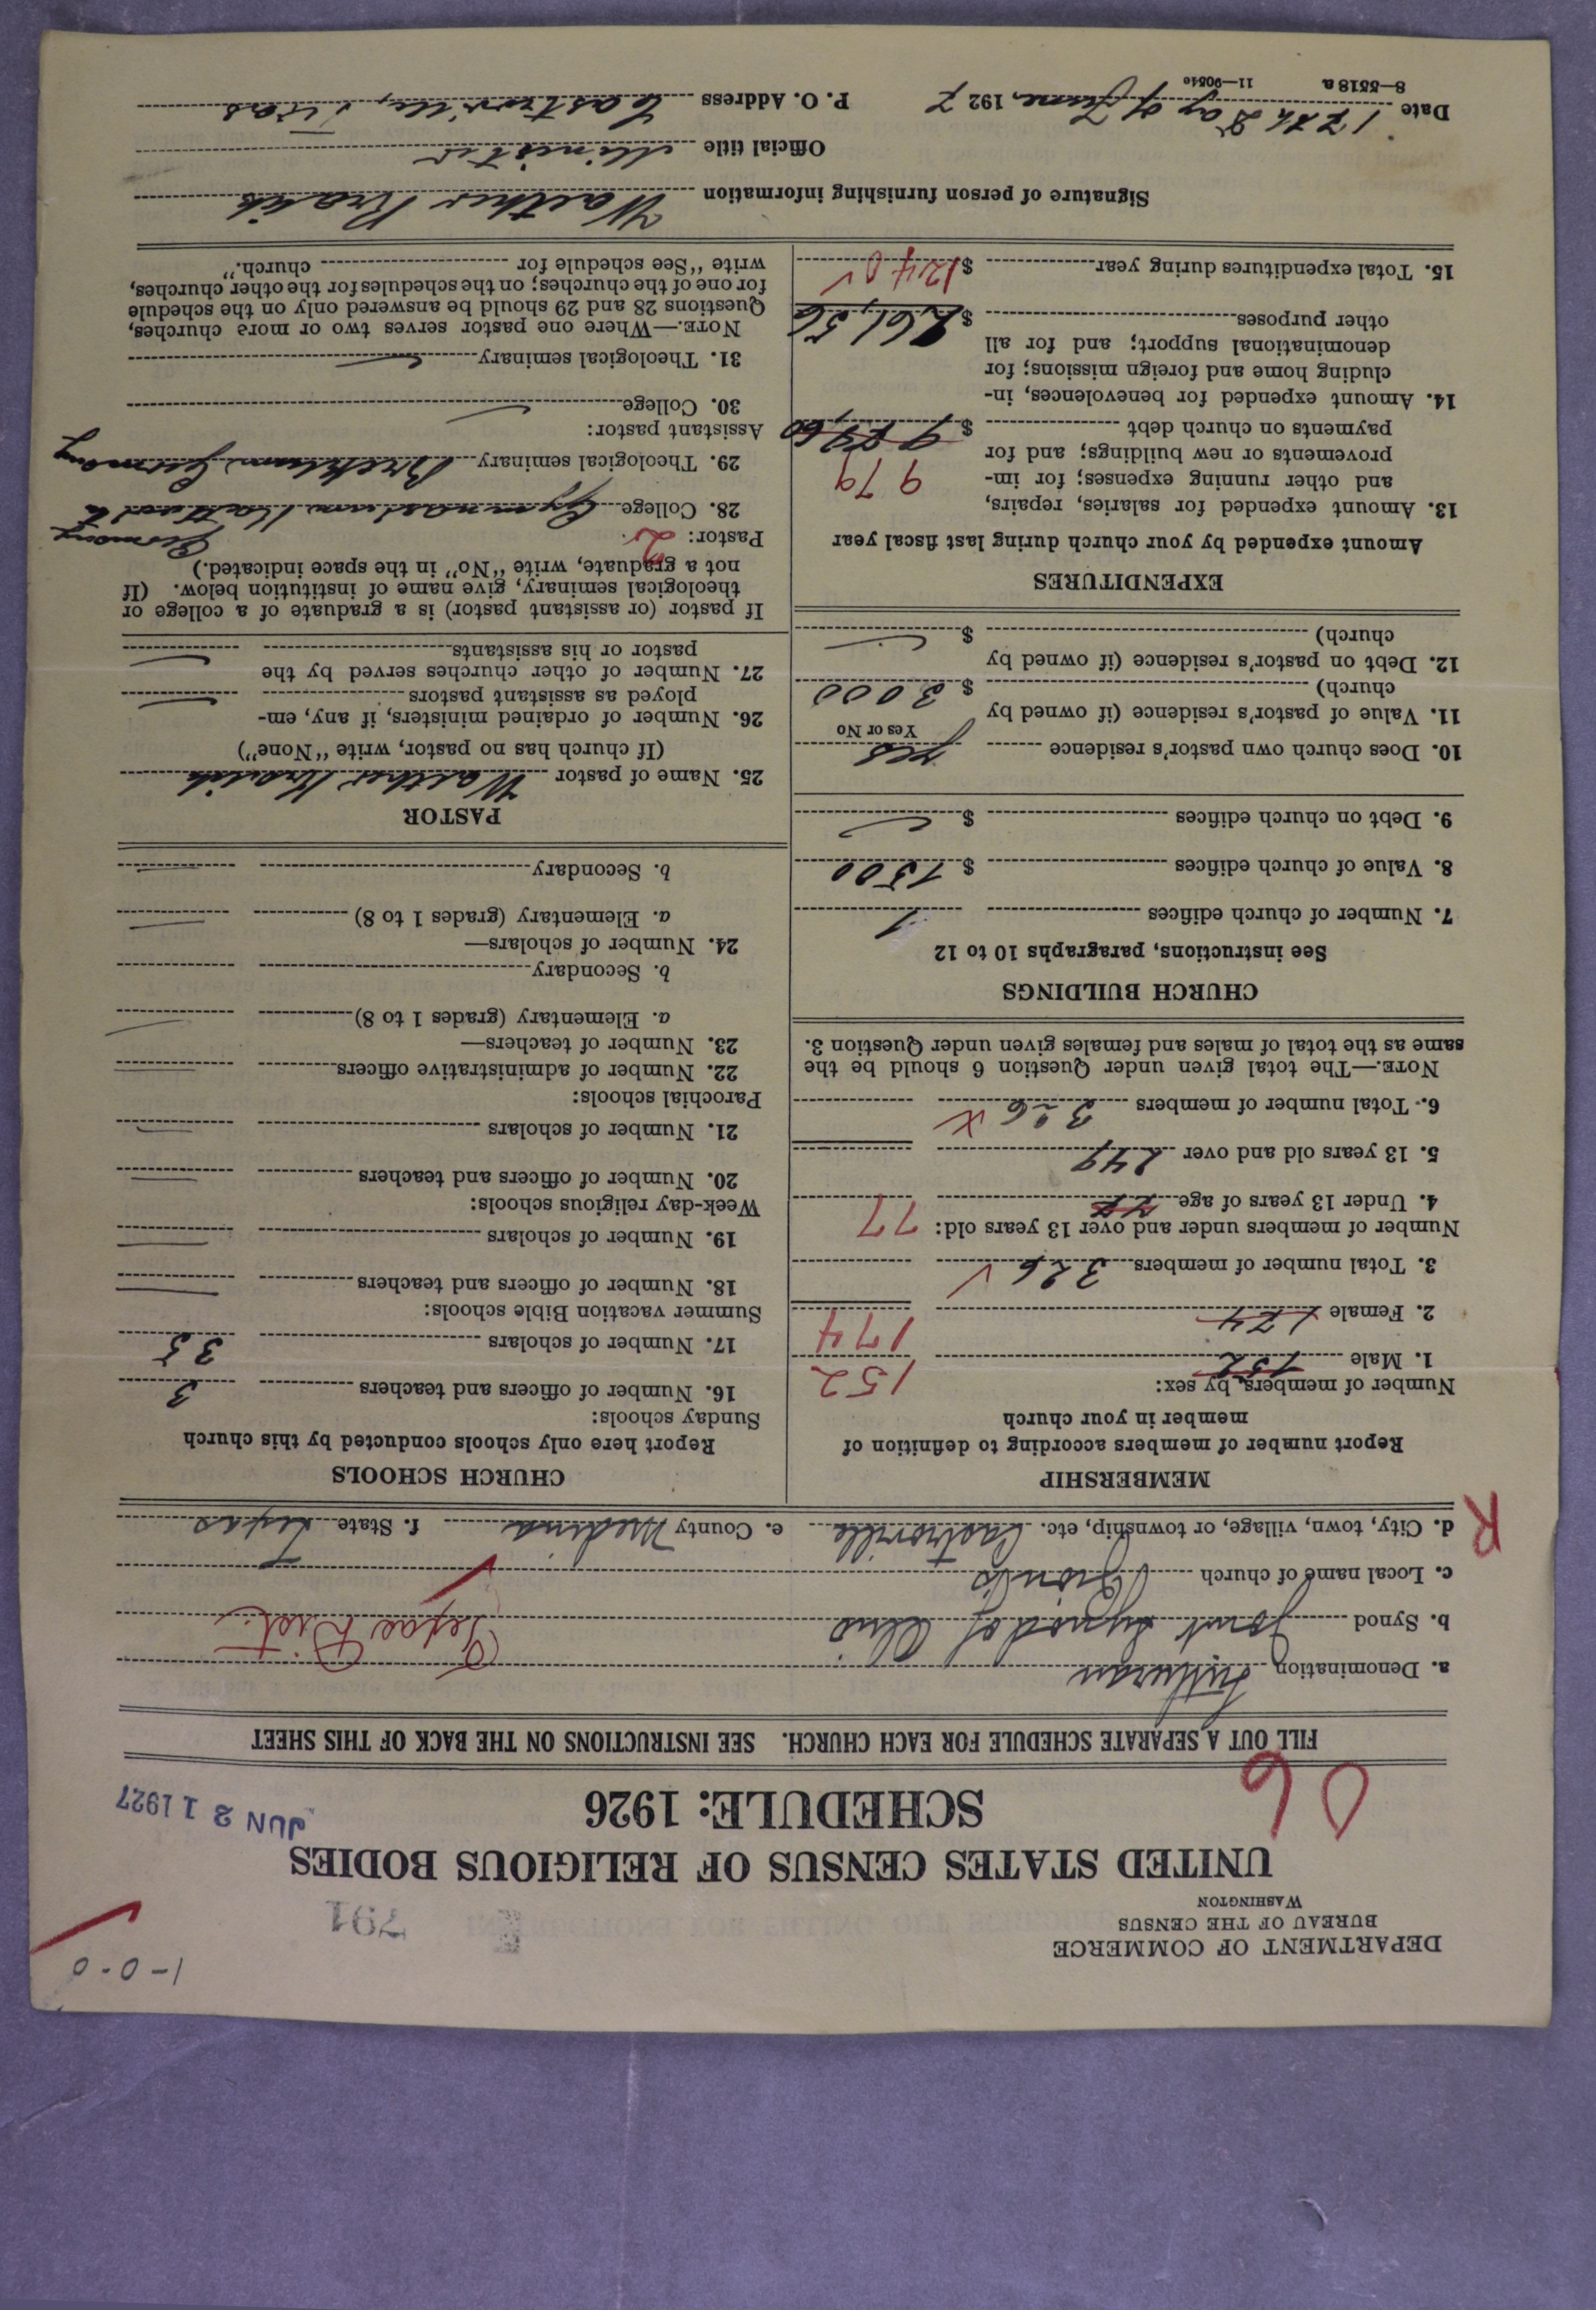 1-0-0
DEPARTMENT OF COMMERCE
BUREAU OF THE CENSUS
WASHINGTON
791
UNITED STATES CENSUS OF RELIGIOUS BODIES
SCHEDULE: 1926
JUN 21 1927
06
FILL OUT A SEPARATE SCHEDULE FOR EACH CHURCH. SEE INSTRUCTIONS ON THE BACK OF THIS SHEET
a. Denomination Lutheran
b. Synod Joint Synod of Ohio Texas Dist.
c. Local name of church Zion's
R
d. City, town, village, or township, etc. Castroville e. County Medina f. State Texas
MEMBERSHIP
Report number of members according to definition of
member in your church
Number of members, by sex:
1. Male 152 152
2. Female 174 174
3. Total number of members 326
Number of members under and over 13 years old: 77
4. Under 13 years of age
5. 13 years old and over 249
6. Total number of members 326
NOTE.—The total given under Question 6 should be the
same as the total of males and females given under Question 3.
CHURCH BUILDINGS
See instructions, paragraphs 10 to 12
7. Number of church edifices 1
8. Value of church edifices $ 1500
9. Debt on church edifices $
10. Does church own pastor's residence yes
Yes or No
11. Value of pastor's residence (if owned by
church) $ 3000
12. Debt on pastor's residence (if owned by
church) $
EXPENDITURES
Amount expended by your church during last fiscal year
13. Amount expended for salaries, repairs,
and other running expenses; for im- 979
provements or new buildings; and for
payments on church debt $
14. Amount expended for benevolences, in-
cluding home and foreign missions; for
denominational support; and for all
other purposes $ 261,56
15. Total expenditures during year $ 1240
CHURCH SCHOOLS
Report here only schools conducted by this church
Sunday schools:
16. Number of officers and teachers 3
17. Number of scholars 35
Summer vacation Bible schools:
18. Number of officers and teachers
19. Number of scholars
Week-day religious schools:
20. Number of officers and teachers
21. Number of scholars
Parochial schools:
22. Number of administrative officers
23. Number of teachers—
a. Elementary (grades 1 to 8)
b. Secondary
24. Number of scholars—
a. Elementary (grades 1 to 8)
b. Secondary
PASTOR
25. Name of pastor Walther
(If church has no pastor, write "None")
26. Number of ordained ministers, if any, em-
ployed as assistant pastors
27. Number of other churches served by the
pastor or his assistants
If pastor (or assistant pastor) is a graduate of a college or
theological seminary, give name of institution below. (If
not a graduate, write "No" in the space indicated.)
Pastor: 2 Germany
28. College Gymnasium
29. Theological seminary Breklum Germany
Assistant pastor:
30. College
31. Theological seminary
NOTE.—Where one pastor serves two or more churches,
Questions 28 and 29 should be answered only on the schedule
for one of the churches; on the schedules for the other churches,
write "See schedule for church."
Signature of person furnishing information Walther
Official title Minister
Date 17th Day of June, 1927 P. O. Address Castroville, Texas
8—5518 a 11—9051c